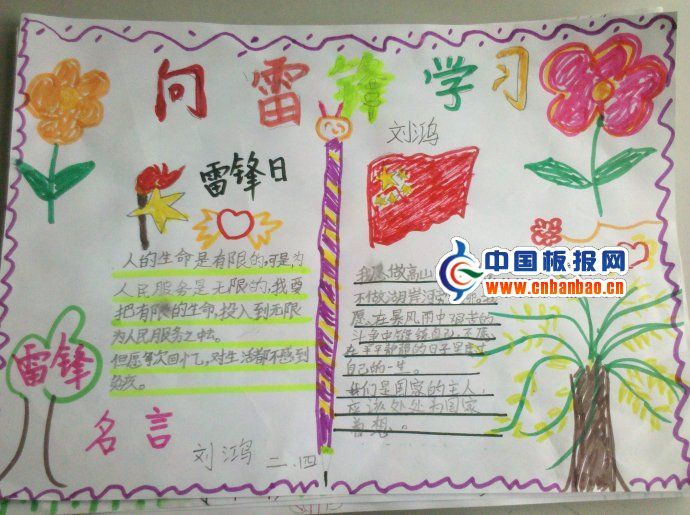 向雷锋学习
刘鸿
雷锋日
人的生命是有限的,可是,为
人民服务是无限的,我要
把有限的生命,投入到无限
为人民服务之中去。
但愿每次回忆,对生活都不感到
负疚。
我愿做高山
不做湖岸
愿在暴风雨中艰苦的
斗争中锻炼自己,不愿
在平平静静的日子里度过
自己的一生。
我们是国家的主人,
应该处处为国家
着想。
雷锋
名言
刘鸿 二.四
中国板报网
www.cnbanbao.cn